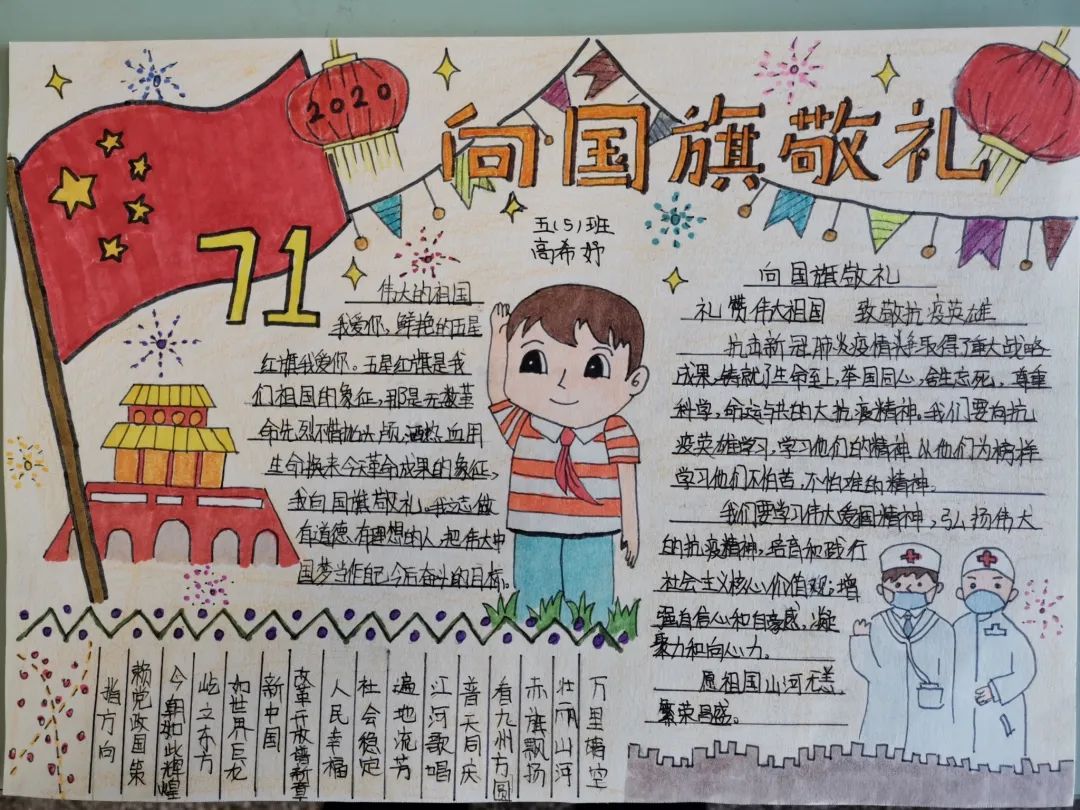 2020
向国旗敬礼
71
五(5)班
高希妤
伟大的祖国
我爱你，鲜艳的五星
红旗我爱你。五星红旗是我
们祖国的象征，那是无数革
命先烈不惜抛头颅，洒热血用
生命换来今天革命成果的象征，
我向国旗敬礼。我立志做
有道德、有理想的人，把伟大中
国梦当作自己今后奋斗的目标。
向国旗敬礼
礼赞伟大祖国 致敬抗疫英雄
抗击新冠肺炎疫情斗争取得了重大战略
成果，铸就了生命至上，举国同心，舍生忘死，尊重
科学，命运与共的大抗疫精神。我们要向抗
疫英雄学习，学习他们的精神以他们为榜样
学习他们不怕苦，不怕难的精神。
我们要学习伟大爱国精神，弘扬伟大
的抗疫精神，培育和践行
社会主义核心价值观；增
强自信心和自豪感，凝
聚力和向心力。
愿祖国山河无恙
繁荣昌盛。
万里晴空
壮丽山河
赤旗飘扬
看九州方圆
普天同庆
江河歌唱
遍地流芳
社会稳定
人民幸福
改革开放谱新章
新中国
如世界巨龙
屹立东方
今朝如此辉煌
赖党政国策
指方向